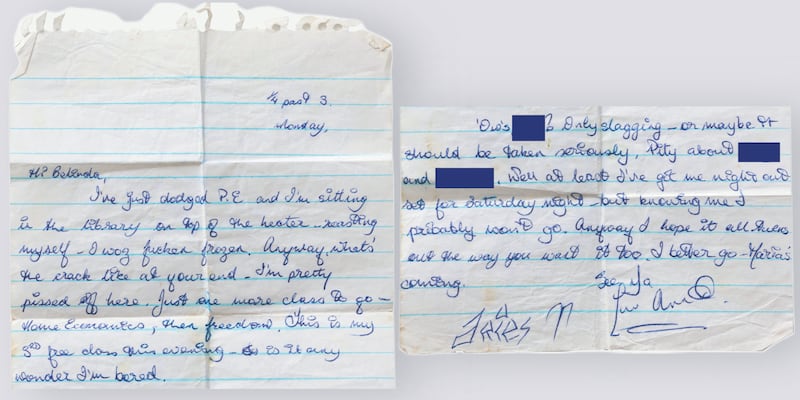 1/4 past 3.
Monday,
Hi Belinda,
I've just dodged P.E and I'm sitting
in the library on top of the heater - roasting
myself - I wos fucken frozen. Anyway, what's
the crack like at your end - I'm pretty
pissed off here. Just one more class to go -
Home Economics, then freedom. This is my
3RD free class this evening - so is it any
wonder I'm bored.
Only slagging - or maybe it
should be taken seriously, Pity about
and . Well at least I've got me night out
set for Saturday night - but knowing me I
probably won't go. Anyway I hope it all turns
out the way you want it too. I better go - Maria's
coming.
See Ya